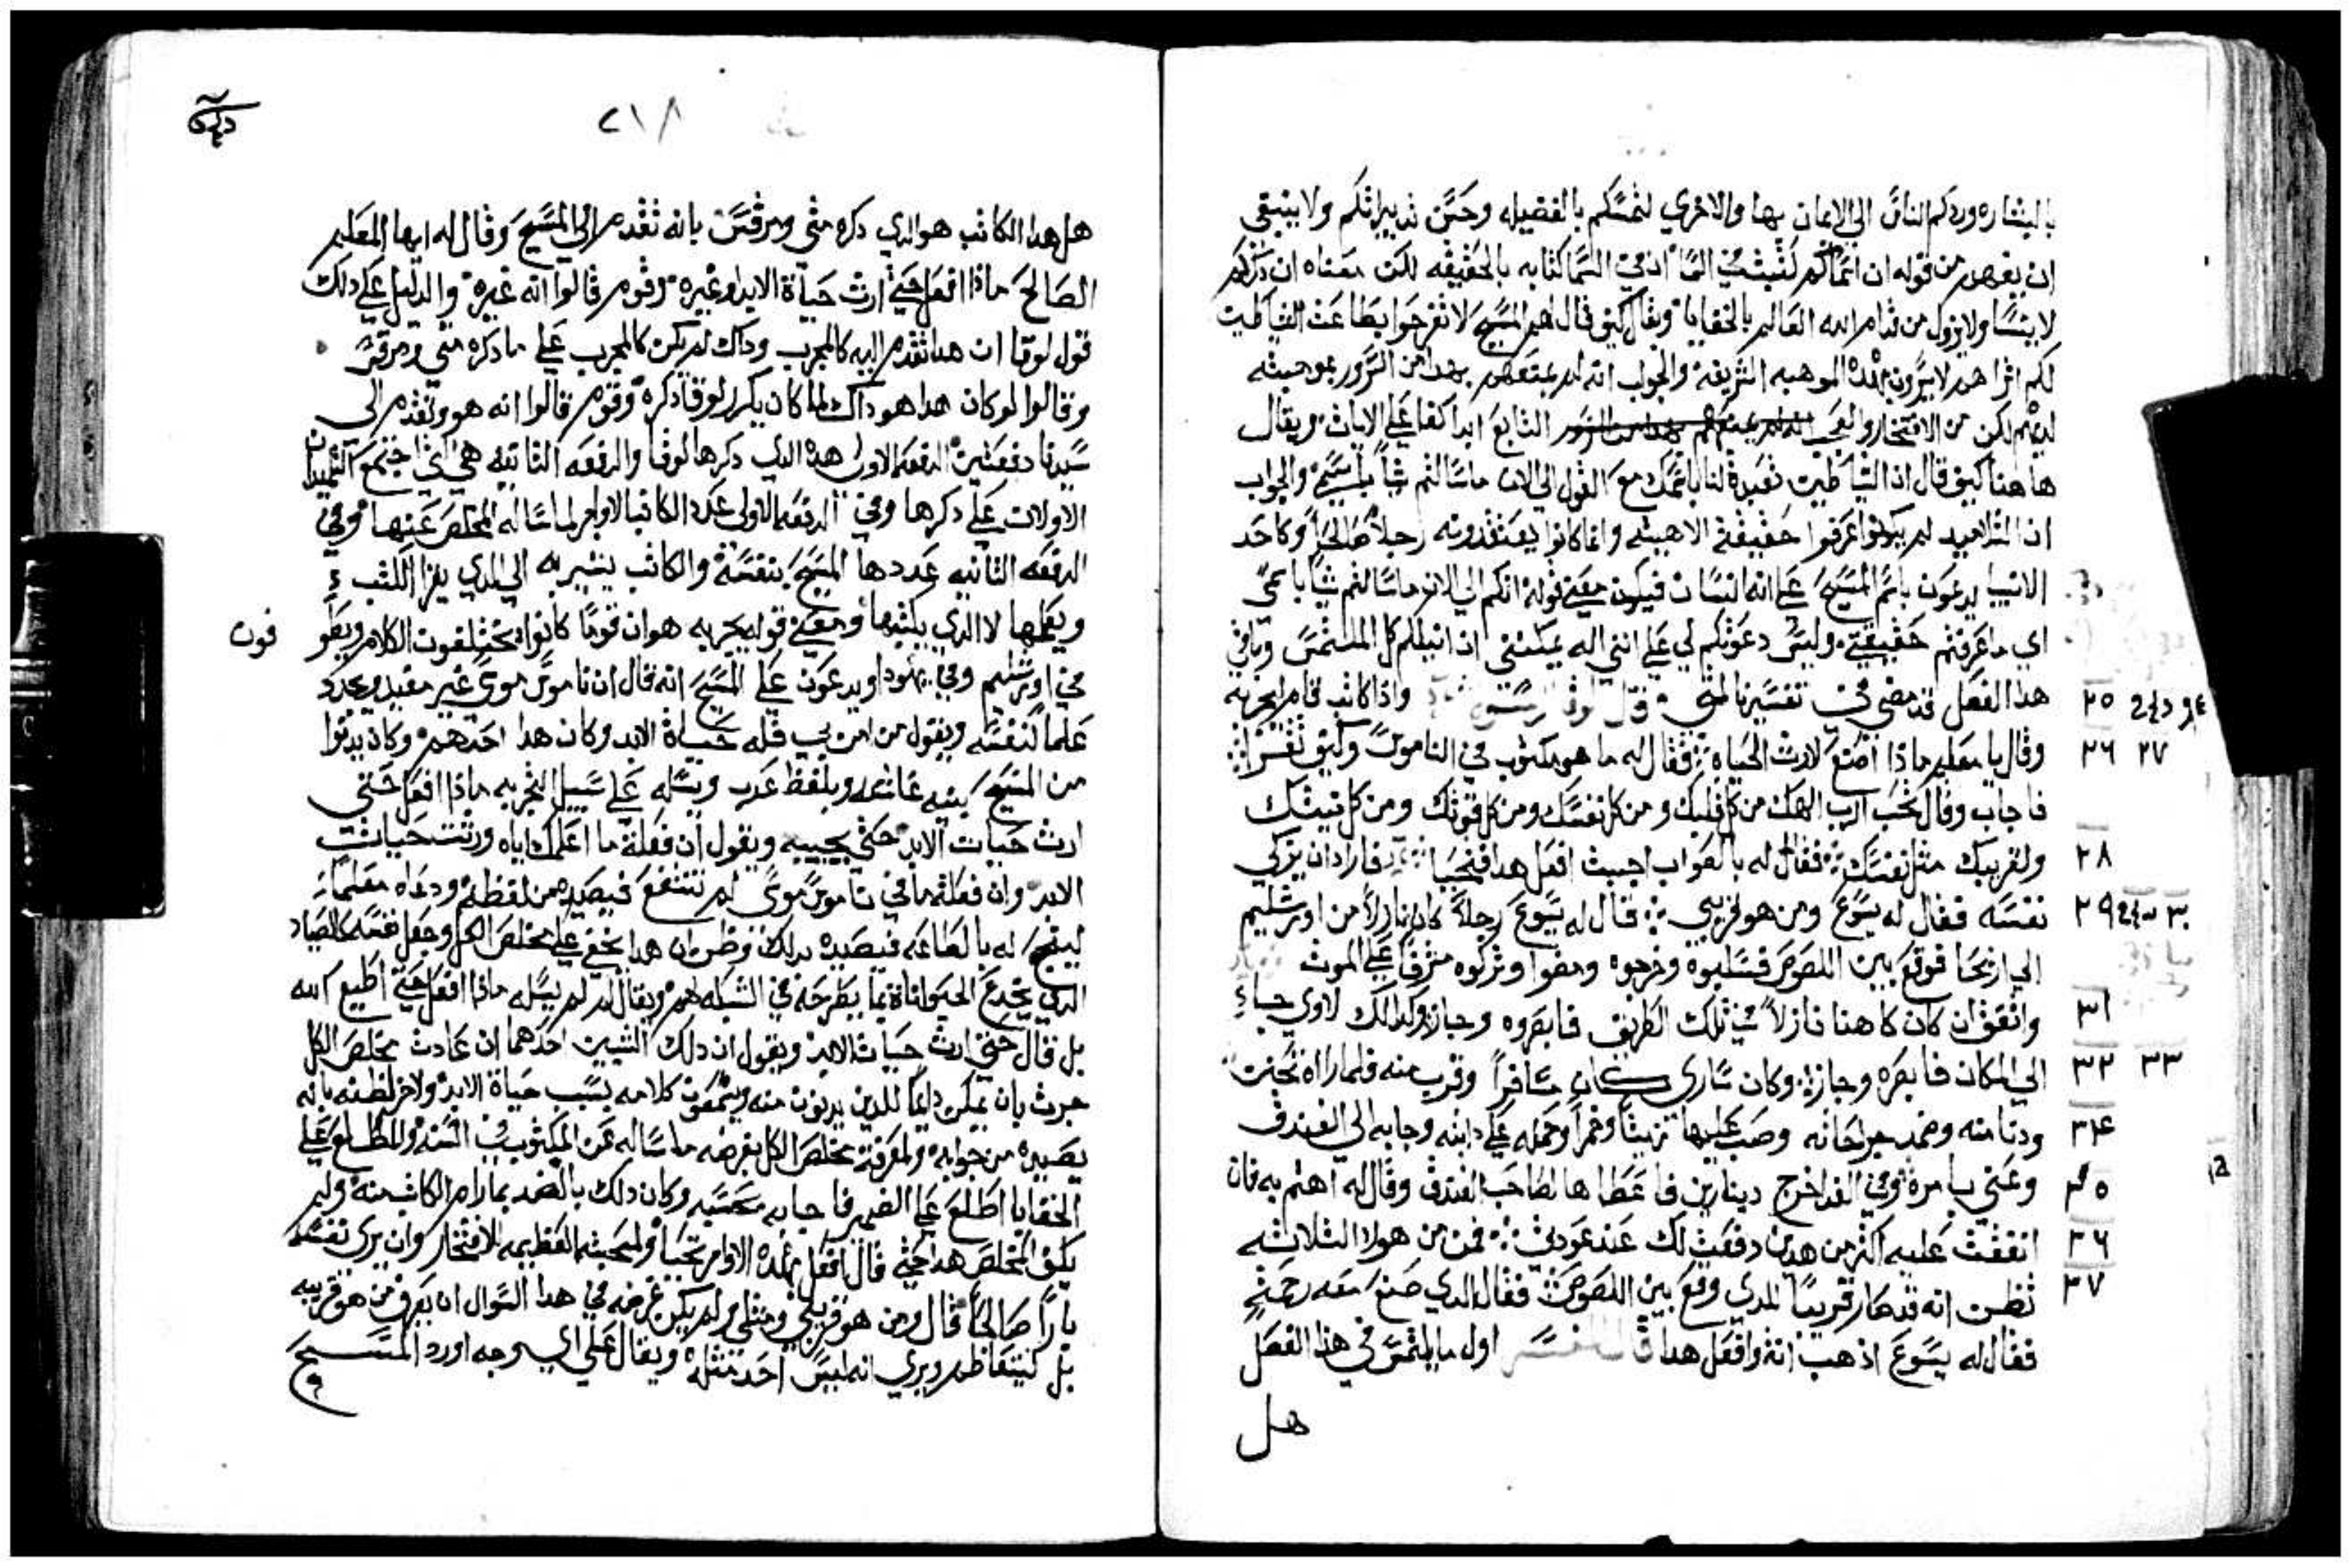 بالبشاره وردكم الناس الي الايمان بها والاخري لتمسكم بالفضيله وحسن تدبيراتكم ولا ينبغي
ان يفهم من قوله ان اسماكم كتبت في السما ان في السما كتابه بالحقيقه لكن معناه ان ذكركم
لا ينسا ولا يزول من قدام الله العالم بالخفايا ويقال كيف قال لهم المسيح لا تفرحوا بطاعة الشياطين
لكم اترا هم لا يسرون بهذه الموهبه الشريفه والجواب انه لم يمنعهم بهدا من السرور بموهبته
لديهم لكن من الافتخار والعجب التابع ابدا كفاعلي الايات ويقال
ها هنا كيف قال ان الشياطين تعبد لنا باسمك مع القول الي الان ما سالتم شيا باسمي والجواب
ان التلاميد لم يكونوا عرفوا حقيقة الاهيته وانما كانوا يعتقدونه رجلا صالحا وكاحد
الانبيا يدعون باسم المسيح علي انه انسان فيكون معني قوله انكم الي الان ما سالتم شيا باسمي
اي ما عرفتم حقيقتي وليس دعوتكم لي علي انني اله يمكنني ان انيلكم كل الملتمس وباقي
هدا الفصل قد مضي في تفسيرنا لمتي قال لوقا واذا كاتب قام ليجربه ٢٥
وقال يا معلم ماذا اصنع لارث الحياه فقال له ما هو مكتوب في الناموس وكيف تقرا ٢٦ ٢٧
فاجاب وقال تحب الرب الهك من كل قلبك ومن كل نفسك ومن كل قوتك ومن كل نيتك
ولقريبك مثل نفسك فقال له بالصواب اجبت افعل هدا فتحيا فاراد ان يزكي ٢٨
نفسه فقال له يسوع ومن هو قريبي قال له يسوع رجلا كان نازلا من اورشليم ٢٩ ٣٠
الي اريحا فوقع بين اللصوص فسلبوه وجرحوه ومضوا وتركوه مشرفا علي الموت
واتفق ان كان كاهنا نازلا في تلك الطريق فابصره وجاز وكدالك لاوي جاء ٣١
الي المكان فابصره وجازه وكان سامري كان مسافرا وقرب منه فلما راه تحنن ٣٢ ٣٣
ودنا منه وضمد جراحاته وصب عليها زيتا وخمرا وحمله علي دابته وجابه الي الفندق ٣٤
وعني بامره وفي الغد اخرج دينارين فاعطاها لصاحب الفندق وقال له اهتم به فان ٣٥
انفقت عليه اكتر من هدين دفعت لك عند عودتي فمن من هولاء الثلاثه ٣٦
تظن انه قد صار قريبا للدي وقع بين اللصوص فقال الدي صنع معه رحمة ٣٧
فقال له يسوع اذهب انت وافعل هدا قال المفسر اول ما يلتمس في هذا الفصل
هل
٢١٨
هل هدا الكاتب هو الدي دكره متي ومرقس بانه تقدم الي المسيح وقال له ايها المعلم
الصالح ماذا افعل حتي ارث حياة الابد او غيره وقوم قالوا انه غيره والدليل علي دلك
قول لوقا ان هدا تقدم اليه كالمجرب وداك لم يكن كالمجرب علي ما دكره متي ومرقس
وقالوا لو كان هدا هو داك لما كان يكرر لوقا دكره وقوم قالوا انه هو وتقدم الي
سيدنا دفعتين الدفعه الاولي هده التي دكرها لوقا والدفعه التانيه هي التي اجتمع التلميدان
الاولان علي دكرها وفي الدفعه الاولي عدد الكاتب الاوامر لما ساله المخلص عنها وفي
الدفعه التانيه عددها المسيح بنفسه والكاتب يشير به الي الدي يقرا الكتب
ويعلمها لا الدي يكتبها ومعني قوله يجربه هو ان قوما كانوا يختلقون الكلام ويطوفون
في اورشليم وفي يهودا ويدعون علي المسيح انه قال ان ناموس موسي غير مفيد ويمجد
علما لنفسه ويقول من امن بي فله حياة الابد وكان هدا احدهم وكان يدنوا
من المسيح بنيه غاشه وبلفظ عدب ويساله علي سبيل التجربه ماذا افعل حتي
ارث حيات الابد حتي يجيبه ويقول ان فعلة ما اعلمك اياه ورثت حيات
الابد وان فعلة ما في ناموس موسي لم تنتفع فيصيده من لفظه ودعاه معلما
لينجح له بالطاعه فيصيده بدلك وظن ان هدا يخفي علي مخلص الكل وجعل نفسه كالصياد
الدي يخدع الحيوانات بما يطرحه في الشبكه لهم ويقال لم لم يساله ماذا افعل حتي اطيع الله
بل قال حتي ارث حيات الابد ويقول ان دلك لشيين احدهما ان عادت مخلص الكل
جرت بان يمكن دايما للدين يدنون منه ويسمعون كلامه بسبب حياة الابد والاخر لظنه بانه
يصيده من جوابه ولمعرفة مخلص الكل بغرضه ما ساله عن المكتوب في السنه والمطلع علي
الخفايا اطلع علي الضمير فاجابه بحسبه وكان دلك بالضد بما رام الكاتب منه ولم
يكف المخلص هدا حتي قال افعل بهده الاوامر تحيا ولمحبته العظيمه للافتخار وان يري نفسه
بارا صالحا قال ومن هو قريبي ومتلي ولم يكن غرضه في هدا السوال ان يعرف من هو قريبه
بل ليتعاظم ويري انه ليس احد متله ويقال علي اي وجه اورد المسيح